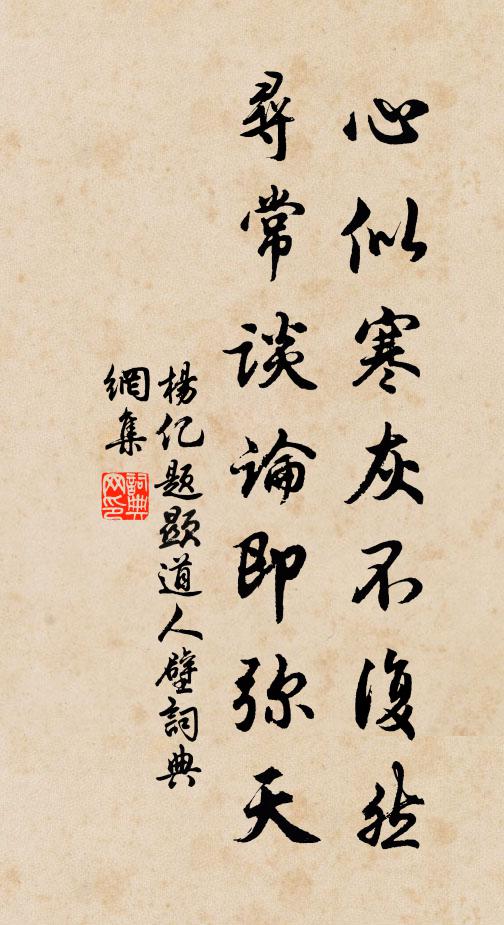 心似寒灰不復然
尋常談論即弥天
楊亿題顯道人壁詞典
網集
詞典
网印